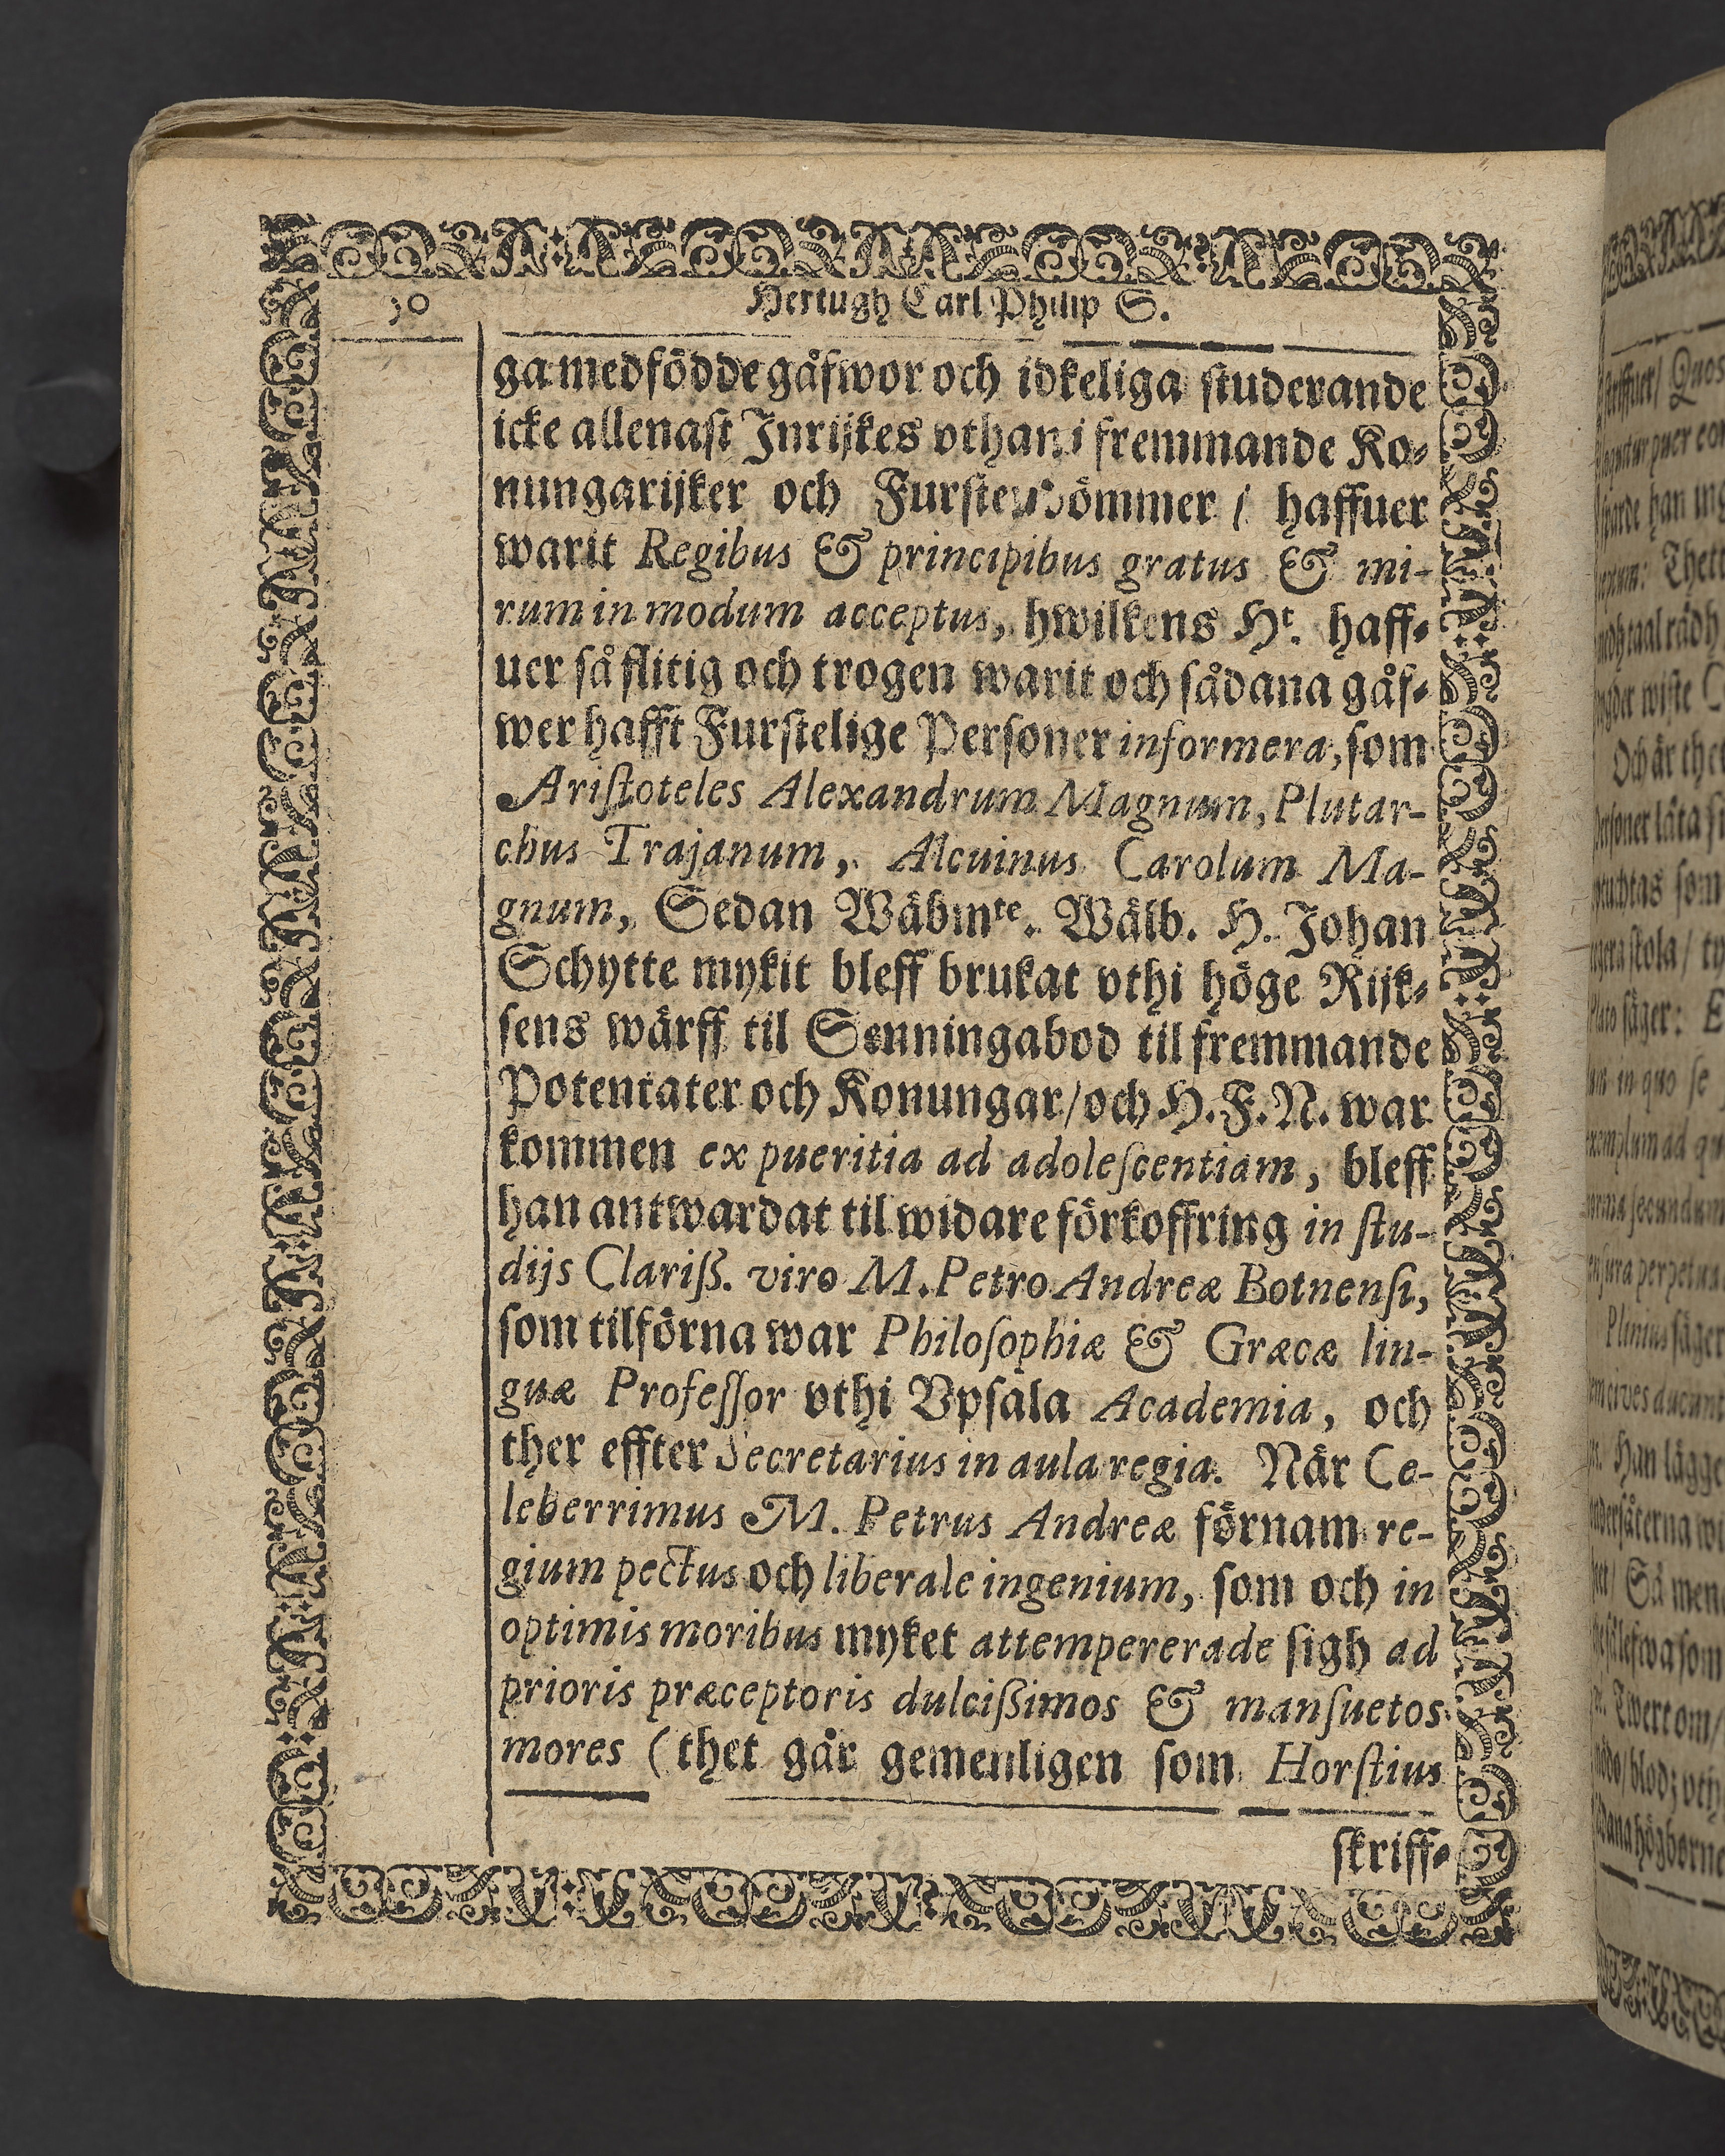 30 Hertugh Carl Philip S.
ga medfödde gåfwor och idkeliga studerande
icke allenast Inrijkes vthan i fremmande Ko-
nungarijker och Furstendömmer / haffuer
warit Regibus & principibus gratus & mi-
rum in modum acceptus, hwilkens Ht. haff-
uer så flitig och trogen warit och sådana gåf-
wer hafft Furstelige Personer informera, som
Aristoteles Alexandrum Magnum, Plutar-
chus Trajanum, Alcuinus Carolum Ma-
gnum, Sedan Wäbmte. Wälb. H. Johan
Schytte mykit bleff brukat vthi höge Rijk-
sens wärff til Senningabod til fremmande
Potentater och Konungar / och H. F. N. war
kommen ex pueritia ad adolescentiam, bleff
han antwardat til widare förkoffring in stu-
dijs Clariss. viro M. Petro Andreæ Botnensi,
som tilförna war Philosophiæ & Græcæ lin-
guæ Professor vthi Vpsala Academia, och
ther effter Secretarius in aula regia. När Ce-
leberrimus M. Petrus Andreæ förnam re-
gium pectus och liberale ingenium, som och in
optimis moribus myket attempererade sigh ad
prioris præceptoris dulcissimos & mansuetos
mores (thet går gemenligen som Horstius
skriff-